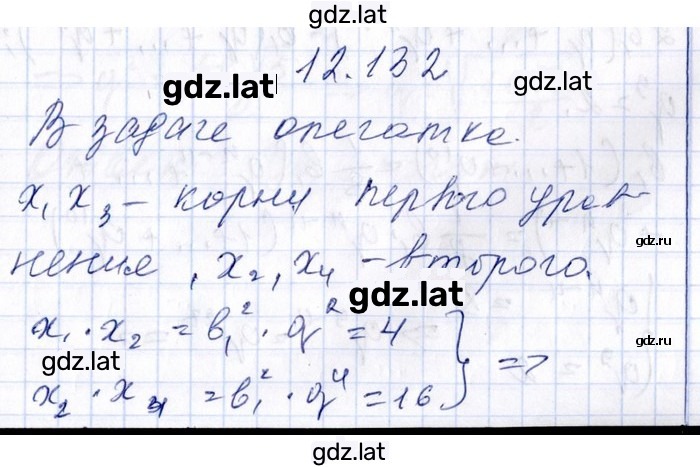 gdz.lat
12.132
gdz.lat
В задаче опечатка.
x₁ x₃ – корни первого урав-
gdz.lat
нение, x₂, x₄ – второго.
gdz.lat
x₁ · x₂ = b₁² · q² = 4
gdz.lat
=>
x₂ · x₄ = b₁² · q⁴ = 16
gdz.lat